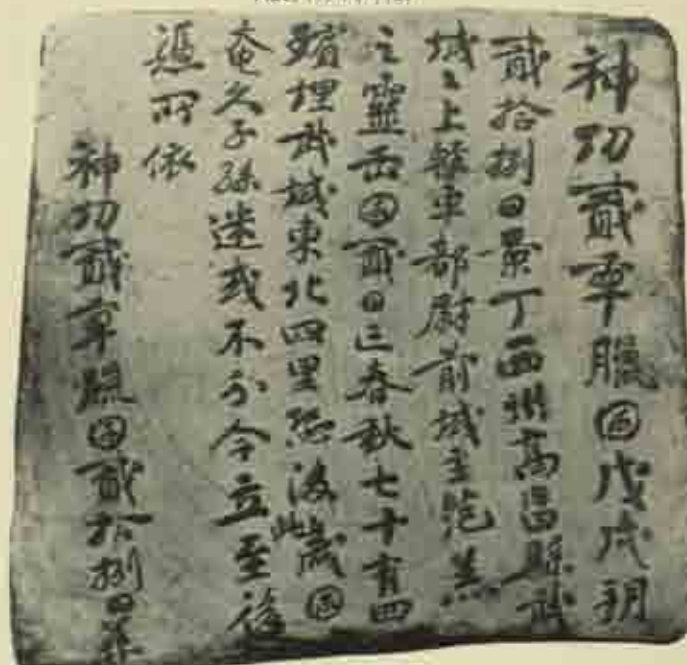 神功貳年臘囝戊戌朔
貳拾捌日景丁西州高昌縣武
城〻上輕車部尉前城主范羔
之靈𠙺囝貳日亡春秋七十有四
殯埋武城東北四里恐後此歲囝
奄久子孫迷或不分今立至後
憑所依
神功貳年臘囝貳拾捌日葬